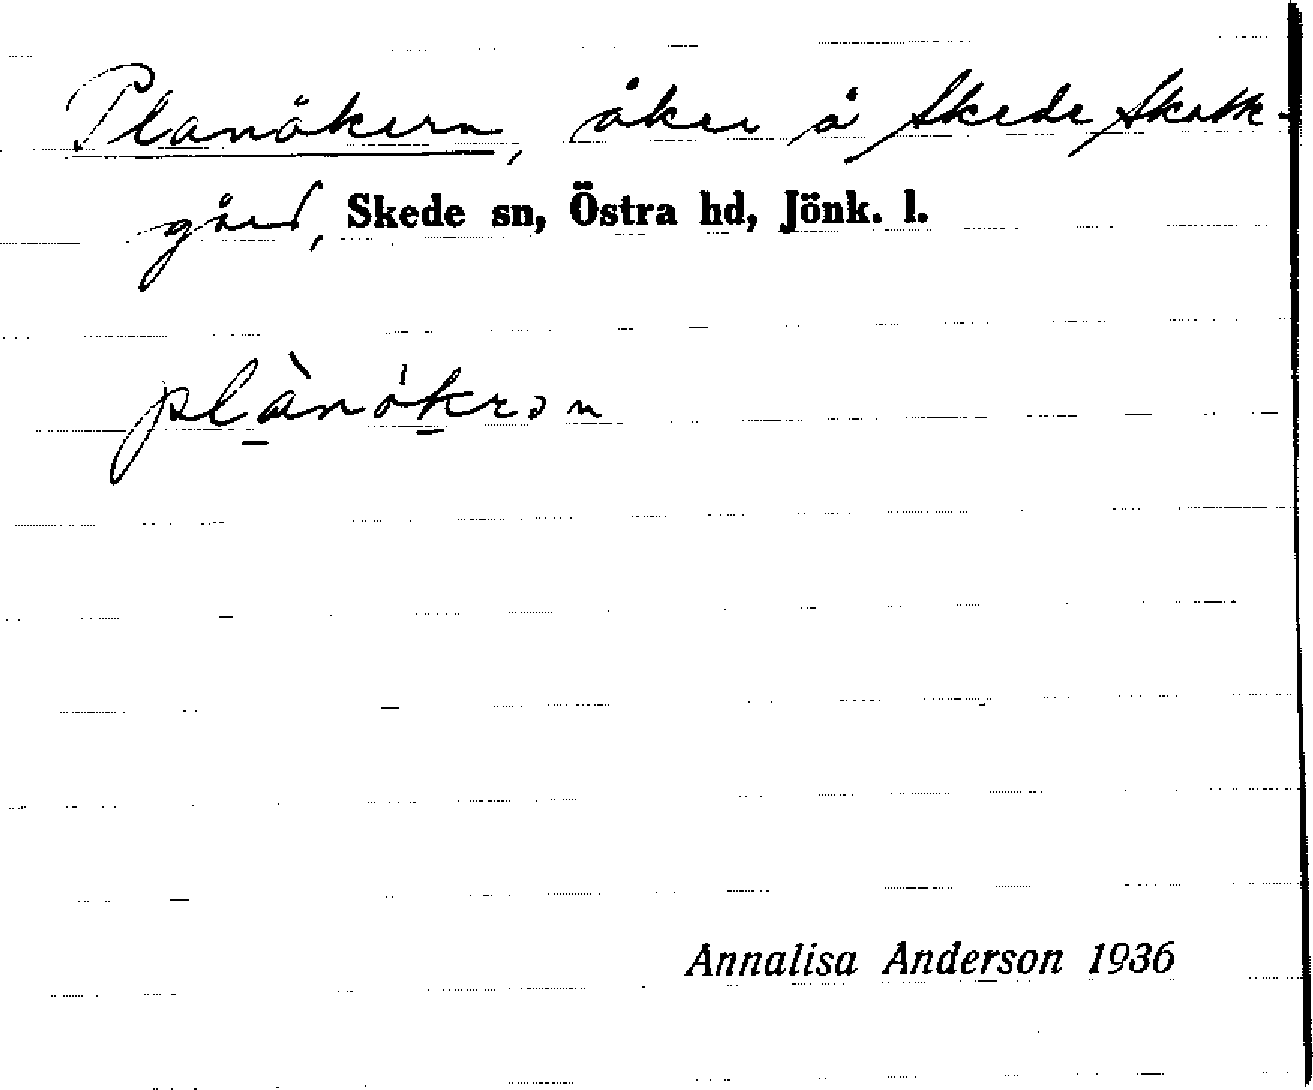 Planåkern, åker å Skede Skatte-
gård, Skede sn, Östra hd, Jönk. l.
plànåkrən
Annalisa Anderson 1936